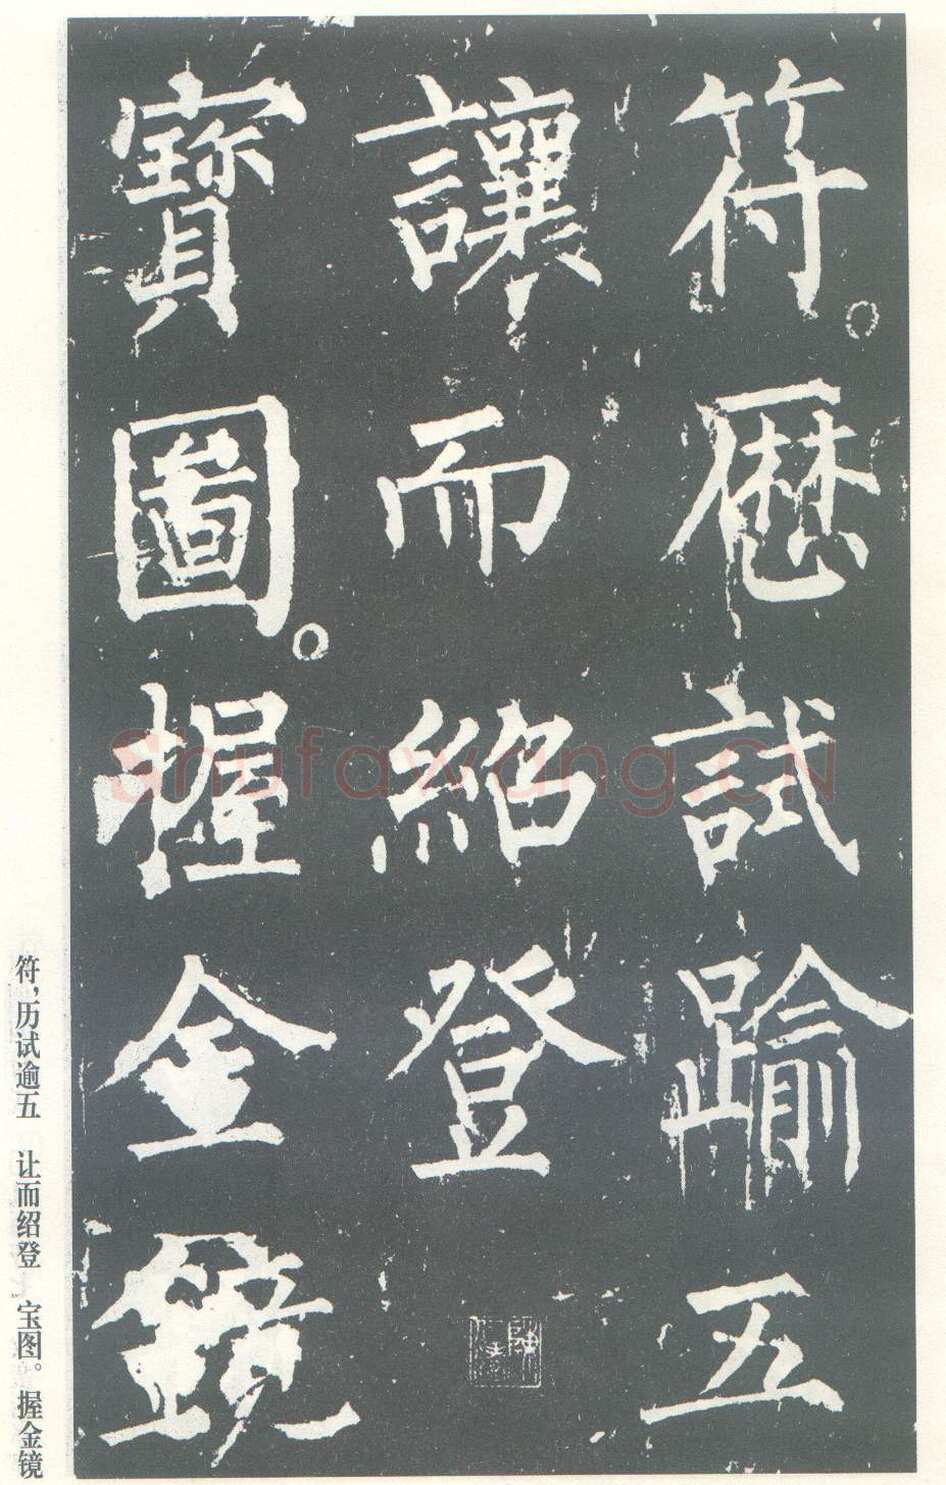 符。历試踰五
讓而紹登
寶圖。握金鏡
符，历试逾五　让而绍登　宝图。握金镜
Shufawang.CN